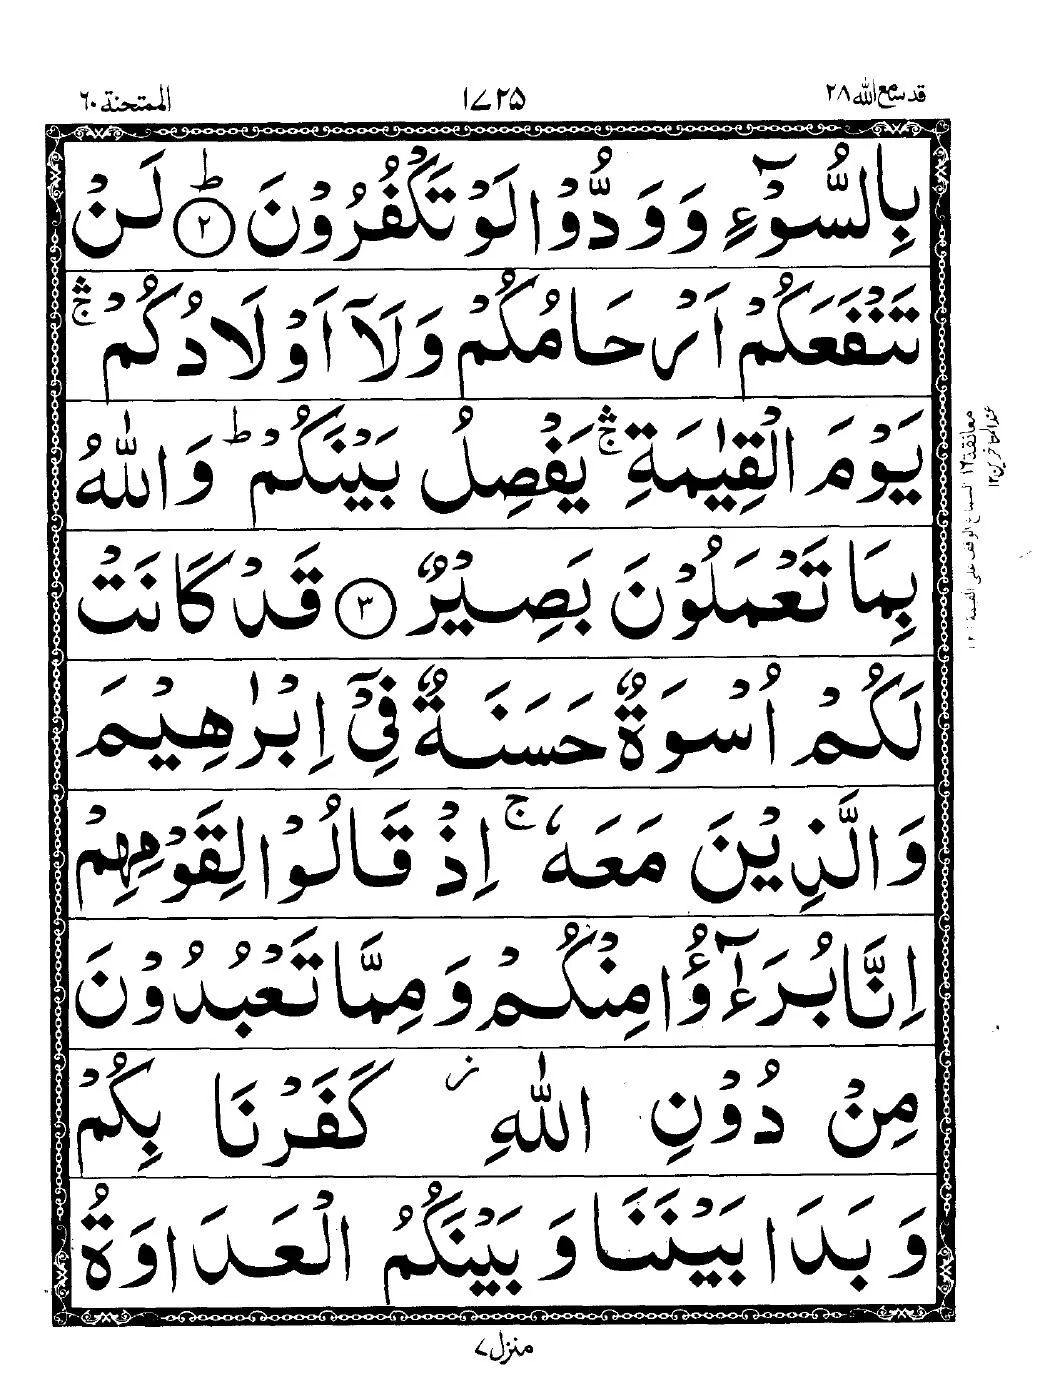 قد سمع الله ٢٨
١٧٢٥
الممتحنة ٦٠
بِالسُّوْٓءِ وَوَدُّوْا لَوْ تَكْفُرُوْنَ ؕ ﴿٢﴾ لَنْ
تَنْفَعَكُمْ اَرْحَامُكُمْ وَلَآ اَوْلَادُكُمْ ۛۚ
يَوْمَ الْقِيٰمَةِ ۛۚ يَفْصِلُ بَيْنَكُمْ ؕ وَاللّٰهُ
بِمَا تَعْمَلُوْنَ بَصِيْرٌ ﴿٣﴾ قَدْ كَانَتْ
لَكُمْ اُسْوَةٌ حَسَنَةٌ فِيْٓ اِبْرٰهِيْمَ
وَالَّذِيْنَ مَعَهٗ ۚ اِذْ قَالُوْا لِقَوْمِهِمْ
اِنَّا بُرَءٰٓؤُا مِنْكُمْ وَمِمَّا تَعْبُدُوْنَ
مِنْ دُوْنِ اللّٰهِ ز كَفَرْنَا بِكُمْ
وَبَدَا بَيْنَنَا وَبَيْنَكُمُ الْعَدَاوَةُ
معانقة ١٦
عند المتأخرين ١٢
منزل ٧